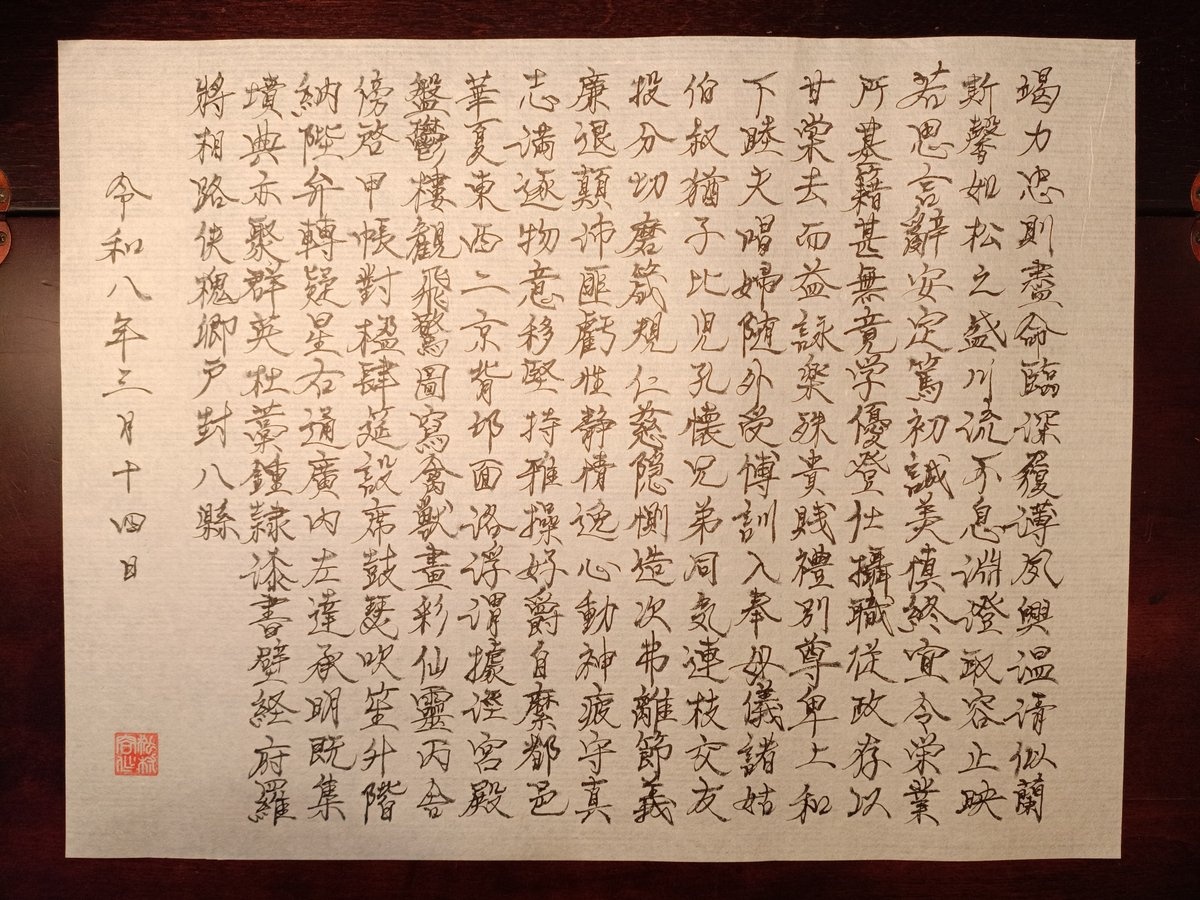 竭力忠則盡命臨深履薄夙興温凊似蘭
斯馨如松之盛川流不息淵澄取容止映
若思言辭安定篤初誠美慎終宜令栄業
所基籍甚無竟学優登仕攝職従政存以
甘棠去而益詠楽殊貴賤禮別尊卑上和
下睦夫唱婦随外受傅訓入奉母儀諸姑
伯叔猶子比児孔懐兄弟同気連枝交友
投分切磨箴規仁慈隠惻造次弗離節義
廉退顛沛匪虧性静情逸心動神疲守真
志満逐物意移堅持雅操好爵自縻都邑
華夏東西二京背邙面洛浮渭據涇宮殿
盤鬱樓観飛驚圖寫禽獣畫彩仙靈丙舎
傍啓甲帳對楹肆筵設席鼓瑟吹笙升階
納陛弁轉疑星右通廣内左達承明既集
墳典亦聚群英杜藁鍾隷漆書壁経府羅
將相路侠槐卿戸封八縣
令和八年三月十四日